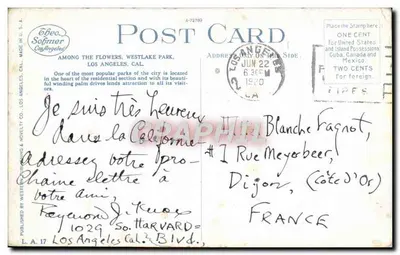 POST CARD
AMONG THE FLOWERS, WESTLAKE PARK,
LOS ANGELES, CAL.
One of the most popular parks of the city is located
in the heart of the residential section and with its beauti-
ful winding palm drives lends attraction to all its visit-
ors.
ON THIS SIDE.
Place the Stamp here
ONE CENT
For United States
and Island Possessions
Cuba, Canada and
Mexico
TWO CENTS
For Foreign.
LOS ANGELES
JUN 22
630PM
CAL
Je suis très heureux
dans la Californie
adressez votre pro-
chaine lettre à
votre ami,
Raymond J.
1029 So. HARVARD
Los Angeles Cal. Blvd.,
Mlle Blanche Fagnot,
#1 Rue Meyerbeer,
Dijon, (Côte d'Or)
FRANCE
L.A. 17